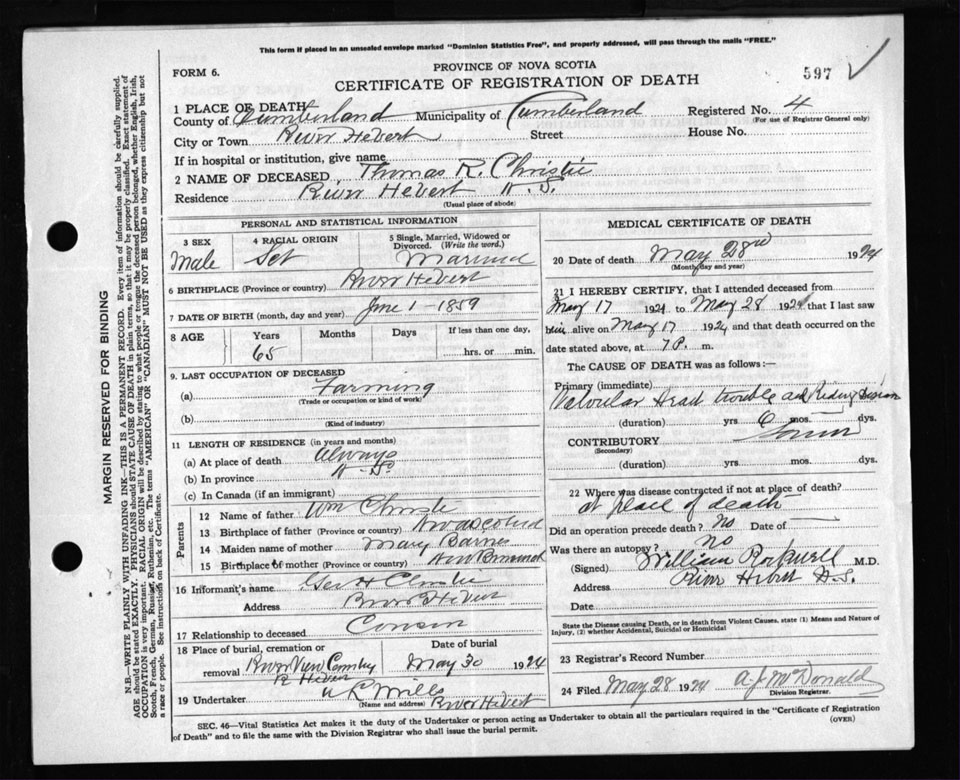 This form if placed in an unsealed envelope marked "Dominion Statistics Free", and properly addressed, will pass through the mails "FREE."
PROVINCE OF NOVA SCOTIA
FORM 6.
CERTIFICATE OF REGISTRATION OF DEATH
597
1 PLACE OF DEATH
County of Cumberland Municipality of Cumberland Registered No. 4
(For use of Registrar General only)
City or Town River Hebert Street House No.
If in hospital or institution, give name
2 NAME OF DECEASED Thomas R. Christie
Residence River Hebert N. S.
(Usual place of abode)
PERSONAL AND STATISTICAL INFORMATION
3 SEX
Male
4 RACIAL ORIGIN
5 Single, Married, Widowed or Divorced. (Write the word.)
Married
6 BIRTHPLACE (Province or country) River Hebert
7 DATE OF BIRTH (month, day and year) June 1 - 1859
8 AGE Years Months Days If less than one day,
65 hrs. or min.
9. LAST OCCUPATION OF DECEASED
(a) Farming
(Trade or occupation or kind of work)
(b)
(Kind of industry)
11 LENGTH OF RESIDENCE (in years and months)
(a) At place of death Always
(b) In province
(c) In Canada (if an immigrant)
Parents
12 Name of father Wm Christie
13 Birthplace of father (Province or country) Nova Scotia
14 Maiden name of mother Mary Barnes
15 Birthplace of mother (Province or country) New Brunswick
16 Informant's name Geo H Christie
Address River Hebert
17 Relationship to deceased Cousin
18 Place of burial, cremation or removal River View Cemetery
R Hebert
Date of burial
May 30 1924
19 Undertaker Mills
(Name and address) River Hebert
MEDICAL CERTIFICATE OF DEATH
20 Date of death May 28 1924
(Month, day and year)
21 I HEREBY CERTIFY, that I attended deceased from
May 17 1924 to May 28 1924 that I last saw
him alive on May 17 1924 and that death occurred on the
date stated above, at 7 P. m.
The CAUSE OF DEATH was as follows:—
Primary (immediate)
Valvular Heart trouble and Kidney
(duration) yrs 6 mos. dys.
CONTRIBUTORY
(Secondary)
(duration) yrs mos. dys.
22 Where was disease contracted if not at place of death?
at place of death
Did an operation precede death? no Date of
Was there an autopsy? no
(Signed) William Rockwell M.D.
Address River Hebert N.S.
Date
State the Disease causing Death, or in death from Violent Causes, state (1) Means and Nature of Injury, (2) whether Accidental, Suicidal or Homicidal
23 Registrar's Record Number
24 Filed May 28 1924 A. J. McDonald
Division Registrar.
SEC. 46—Vital Statistics Act makes it the duty of the Undertaker or person acting as Undertaker to obtain all the particulars required in the "Certificate of Registration
of Death" and to file the same with the Division Registrar who shall issue the burial permit.
(OVER)
MARGIN RESERVED FOR BINDING
N.B.—WRITE PLAINLY WITH UNFADING INK—THIS IS A PERMANENT RECORD. Every item of information should be carefully supplied.
AGE should be stated EXACTLY. PHYSICIANS should STATE CAUSE OF DEATH in plain terms, so that it may be properly classified. Exact statement of
OCCUPATION is very important. RACIAL ORIGIN will be described by stating to what people or tongue the deceased person belonged, whether English, Irish,
Scotch, French, German, Russian, Ruthenian, etc. The terms "AMERICAN" OR "CANADIAN" MUST NOT BE USED as they express citizenship but not
a race or people. See instructions on back of Certificate.